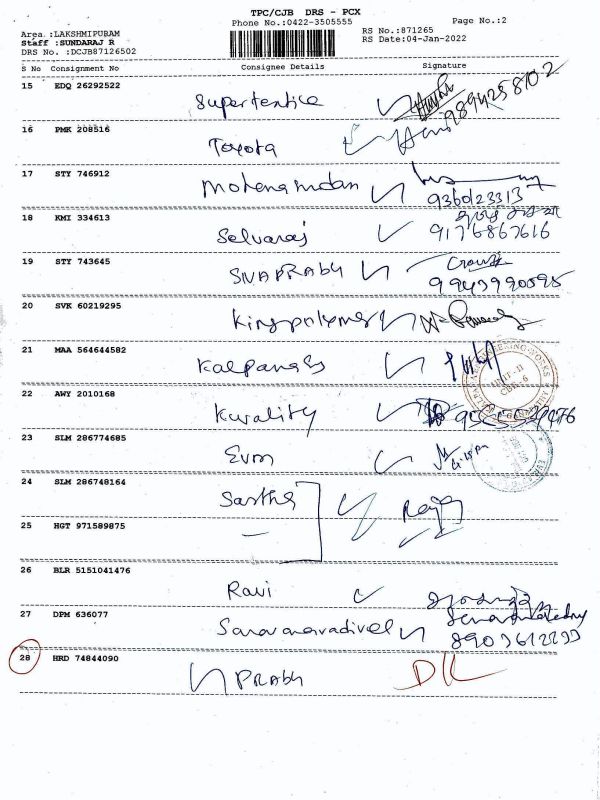 TPC/CJB DRS - PCX
Phone No.:0422-3505555 Page No.:2
Area :LAKSHMIPURAM RS No.:871265
Staff :SUNDARAJ R RS Date:04-Jan-2022
DRS No. :DCJB87126502
S No Consignment No Consignee Details Signature
15 EDQ 26292522
9894258702
16 PMK 208516
Toyota
17 STY 746912
9360123313
18 KMI 334613
Selvaraj 9176867616
19 STY 743645
SIVAPRABU
20 SVK 60219295
Kingpolymers
21 MAA 564644582
Kalpana
22 AWY 2010168
Kwality
23 SLM 286774685
Evm
24 SLM 286748164
Sastha
25 HGT 971589875
26 BLR 5151041476
Ravi
27 DPM 636077
Saravanavadivel
28 HRD 74844090
PRABU DL